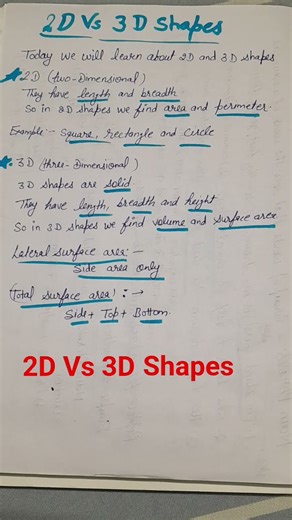 2D Vs 3D Shapes
Today we will learn about 2D and 3D shapes
2D (two-Dimensional)
They have length and breadth
So in 2D shapes we find area and perimeter.
Example:- Square, rectangle and circle
3D (three-Dimensional)
3D shapes are solid
They have length, breadth and height
So in 3D shapes we find volume and surface area
Lateral surface area:-
Side area only
(Total surface area) : →
Side + Top + Bottom
2D Vs 3D Shapes